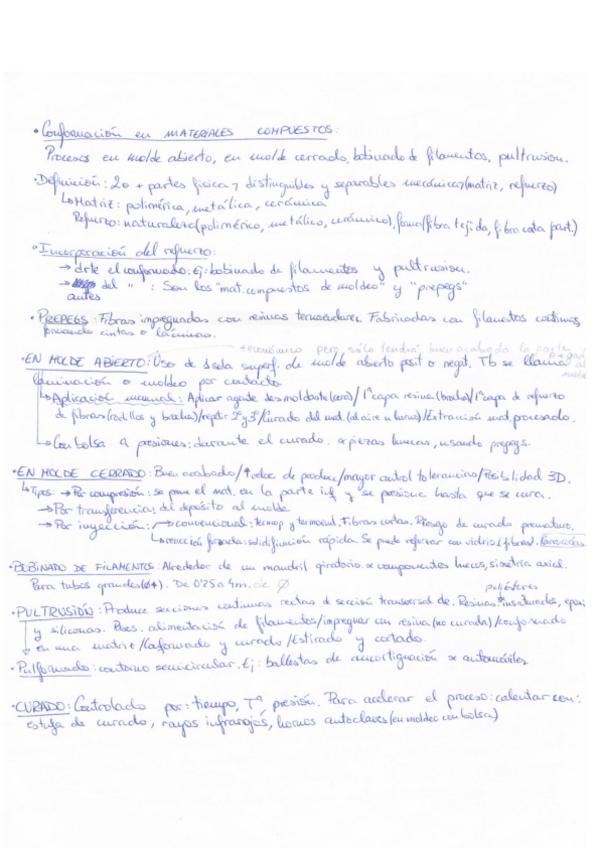 · Conformación en MATERIALES COMPUESTOS:
Procesos en molde abierto, en molde cerrado, bobinado de filamentos, pultrusion.
· Definición: 2 o + partes físicas y distinguibles y separables mecánicas (matriz, refuerzo)
↳ Matriz: polimérica, metálica, cerámica
Refuerzo: naturaleza (polimérico, metálico, cerámico), forma (fibra tejida, fibra corta part.)
· Incorporación del refuerzo:
→ drte el conformado: Ej: bobinado de filamentos y pultrusion.
→ del " : Son los "mat. compuestos de moldeo" y "prepegs"
antes
· PREPEGS: Fibras impregnadas con resinas termoendurec. Fabricadas con filamentos continuos
formando cintas o láminas.
+ económico pero sólo tendrá buen acabado la parte
· EN MOLDE ABIERTO: Uso de 1 sola superf. de molde abierto posit o negat. Tb se llama
laminación o moldeo por contacto.
↳ Aplicación manual: Aplicar agente desmoldante (cera) / 1ª capa resina (brocha) / 1ª capa de refuerzo
de fibras (rodillos y brocha) / repetir 2º y 3º / Curado del mat. (al aire u horno) / Extracción mat. procesado.
↳ Con bolsa a presiones: durante el curado. ∝ piezas huecas, usando prepegs.
· EN MOLDE CERRADO: Buen acabado / ↑ veloc de producc / mayor control tolerancias / Posibilidad 3D.
↳ Tipos: → Por compresión: se pone el mat. en la parte inf y se presiona hasta que se cura.
→ Por transferencia: del depósito al molde
→ Por inyección: → convencional: termop y termoend. Fibras cortas. Riesgo de curado prematuro.
↳ reacción forzada: solidificación rápida. Se puede reforzar con vidrio (fibras).
· BOBINADO DE FILAMENTOS: Alrededor de un mandril giratorio. ∝ componentes huecos, simetría axial.
Para tubos grandes (Ø↑). De 0'25 a 4m. de Ø
poliésteres
· PULTRUSIÓN: Produce secciones continuas rectas de sección transversal cte. Resinas insaturados, epoxi
y siliconas. Pasos. alimentación de filamentos / impregnar con resina (no curada) / conformado
en una matriz / Conformado y curado / Estirado y cortado.
· Pulformado: contorno semicircular. Ej: ballestas de amortiguación ∝ automóviles
· CURADO: Controlado por: tiempo, Tª, presión. Para acelerar el proceso: calentar con:
estufa de curado, rayos infrarrojos, hornos autoclaves (en moldeo con bolsa)